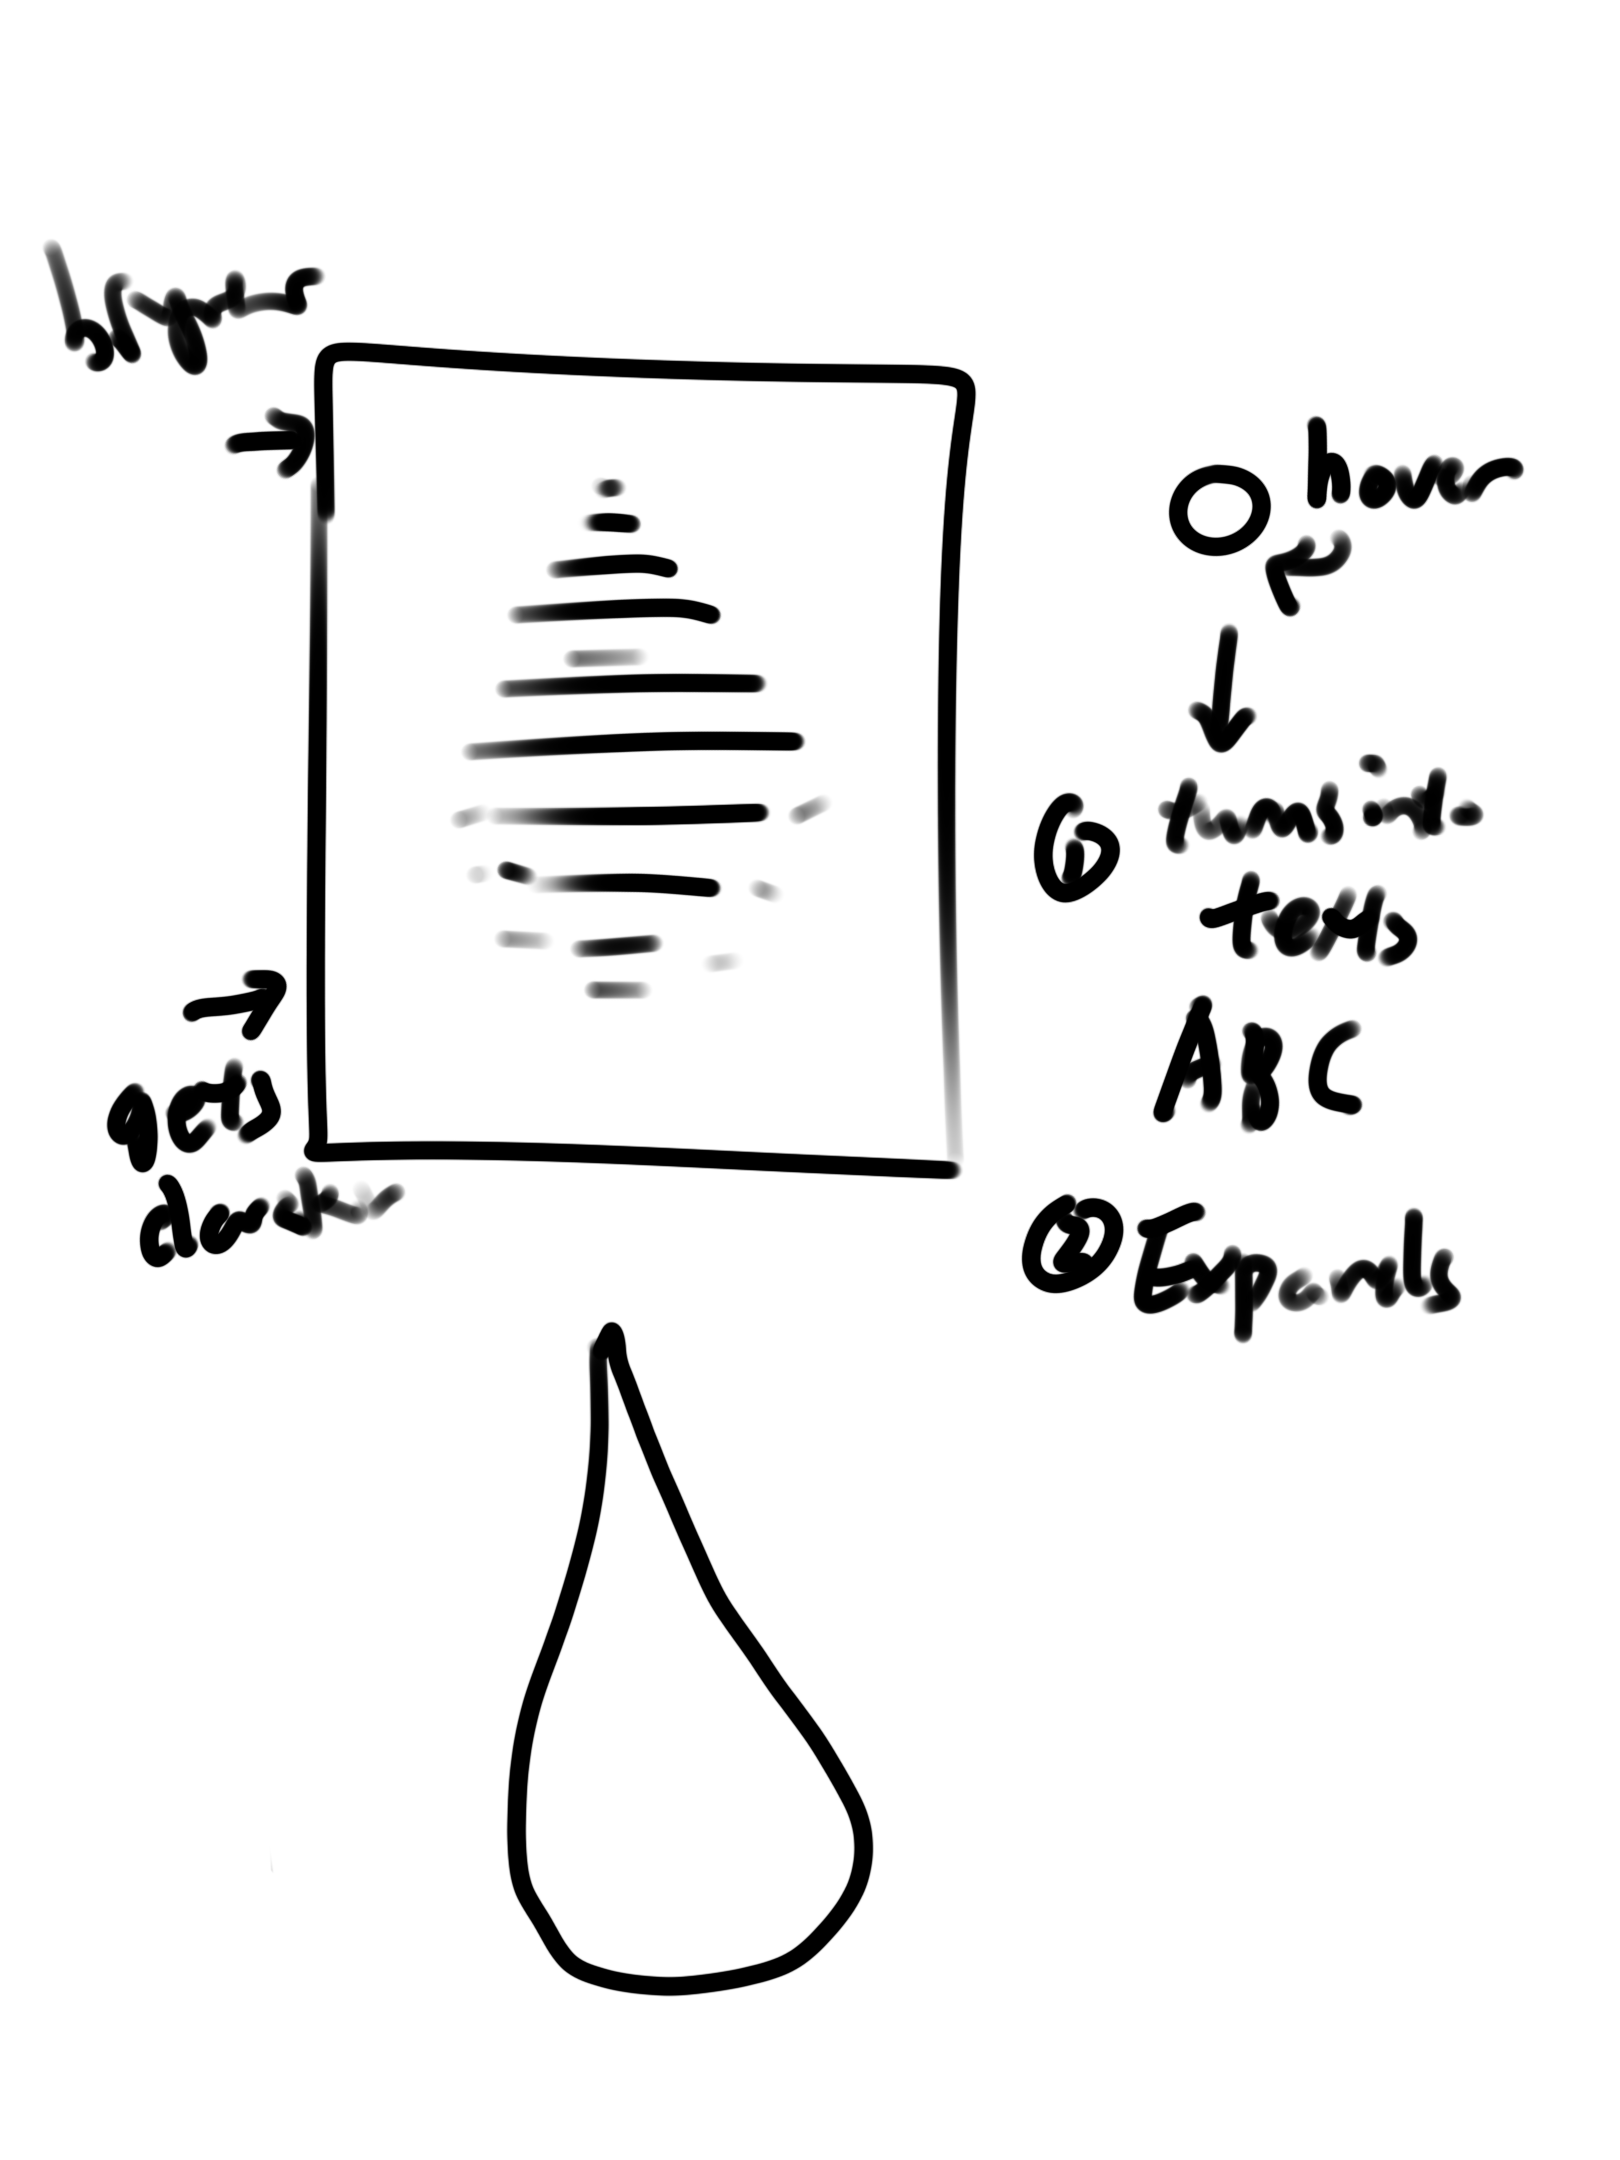 brighter
gets
darker
hover
① turns into
texts
ABC
② Expands